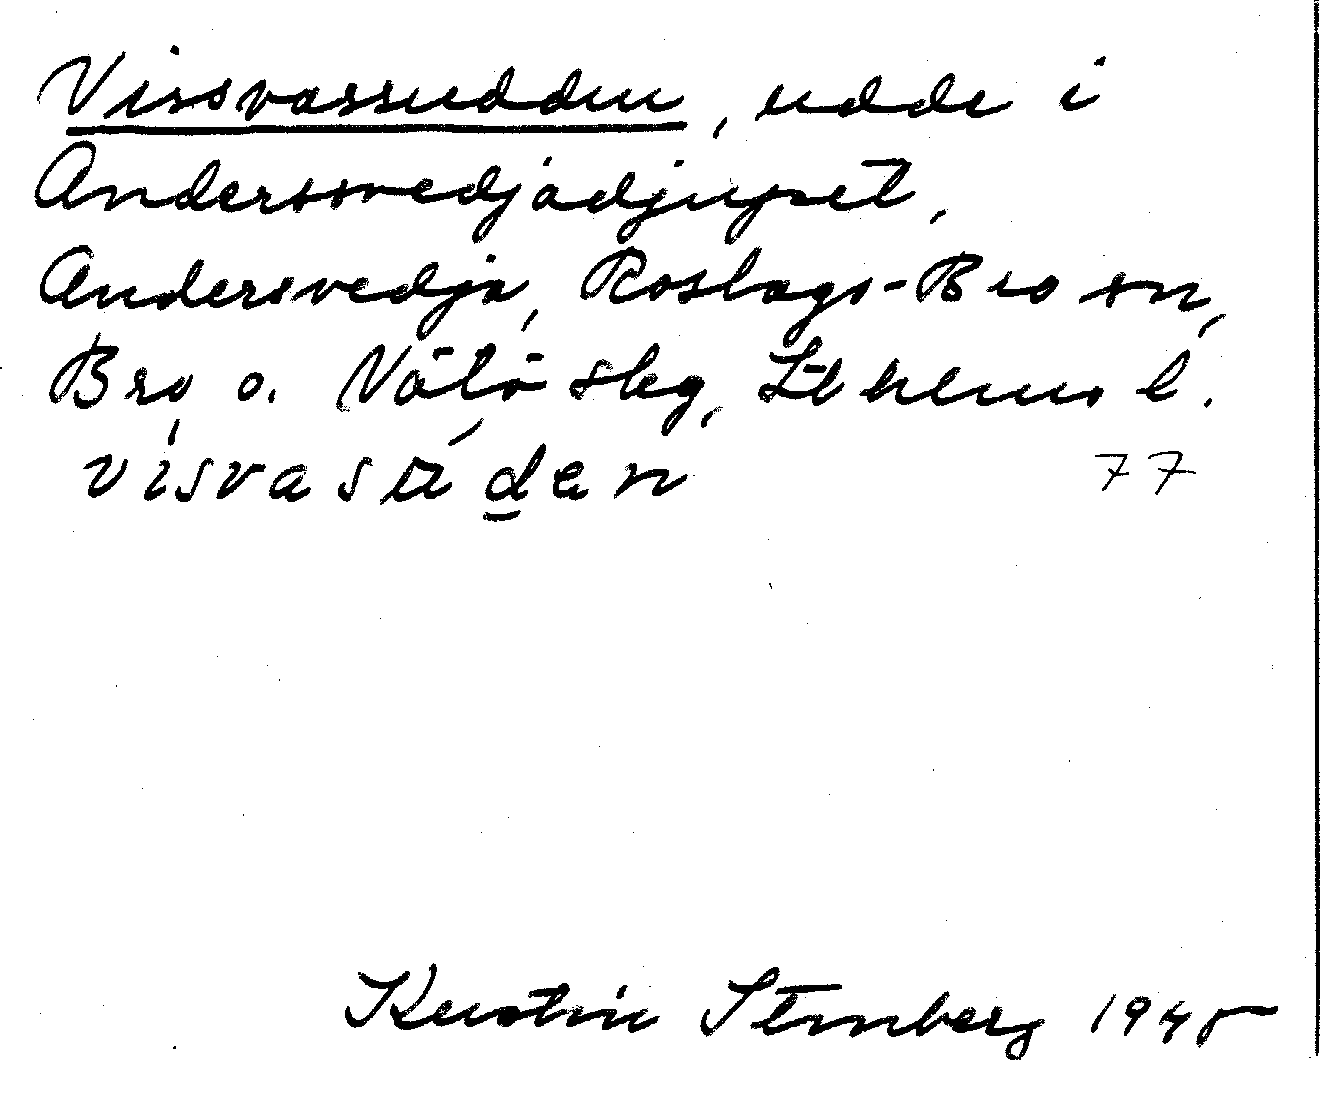 Vissvassudden, udde i
Anderssvedjadjupet,
Andersvedja, Roslags-Bro sn,
Bro o. Vätö skg, Sthlms l.
visvasuden 77
Kerstin Stenberg 1945